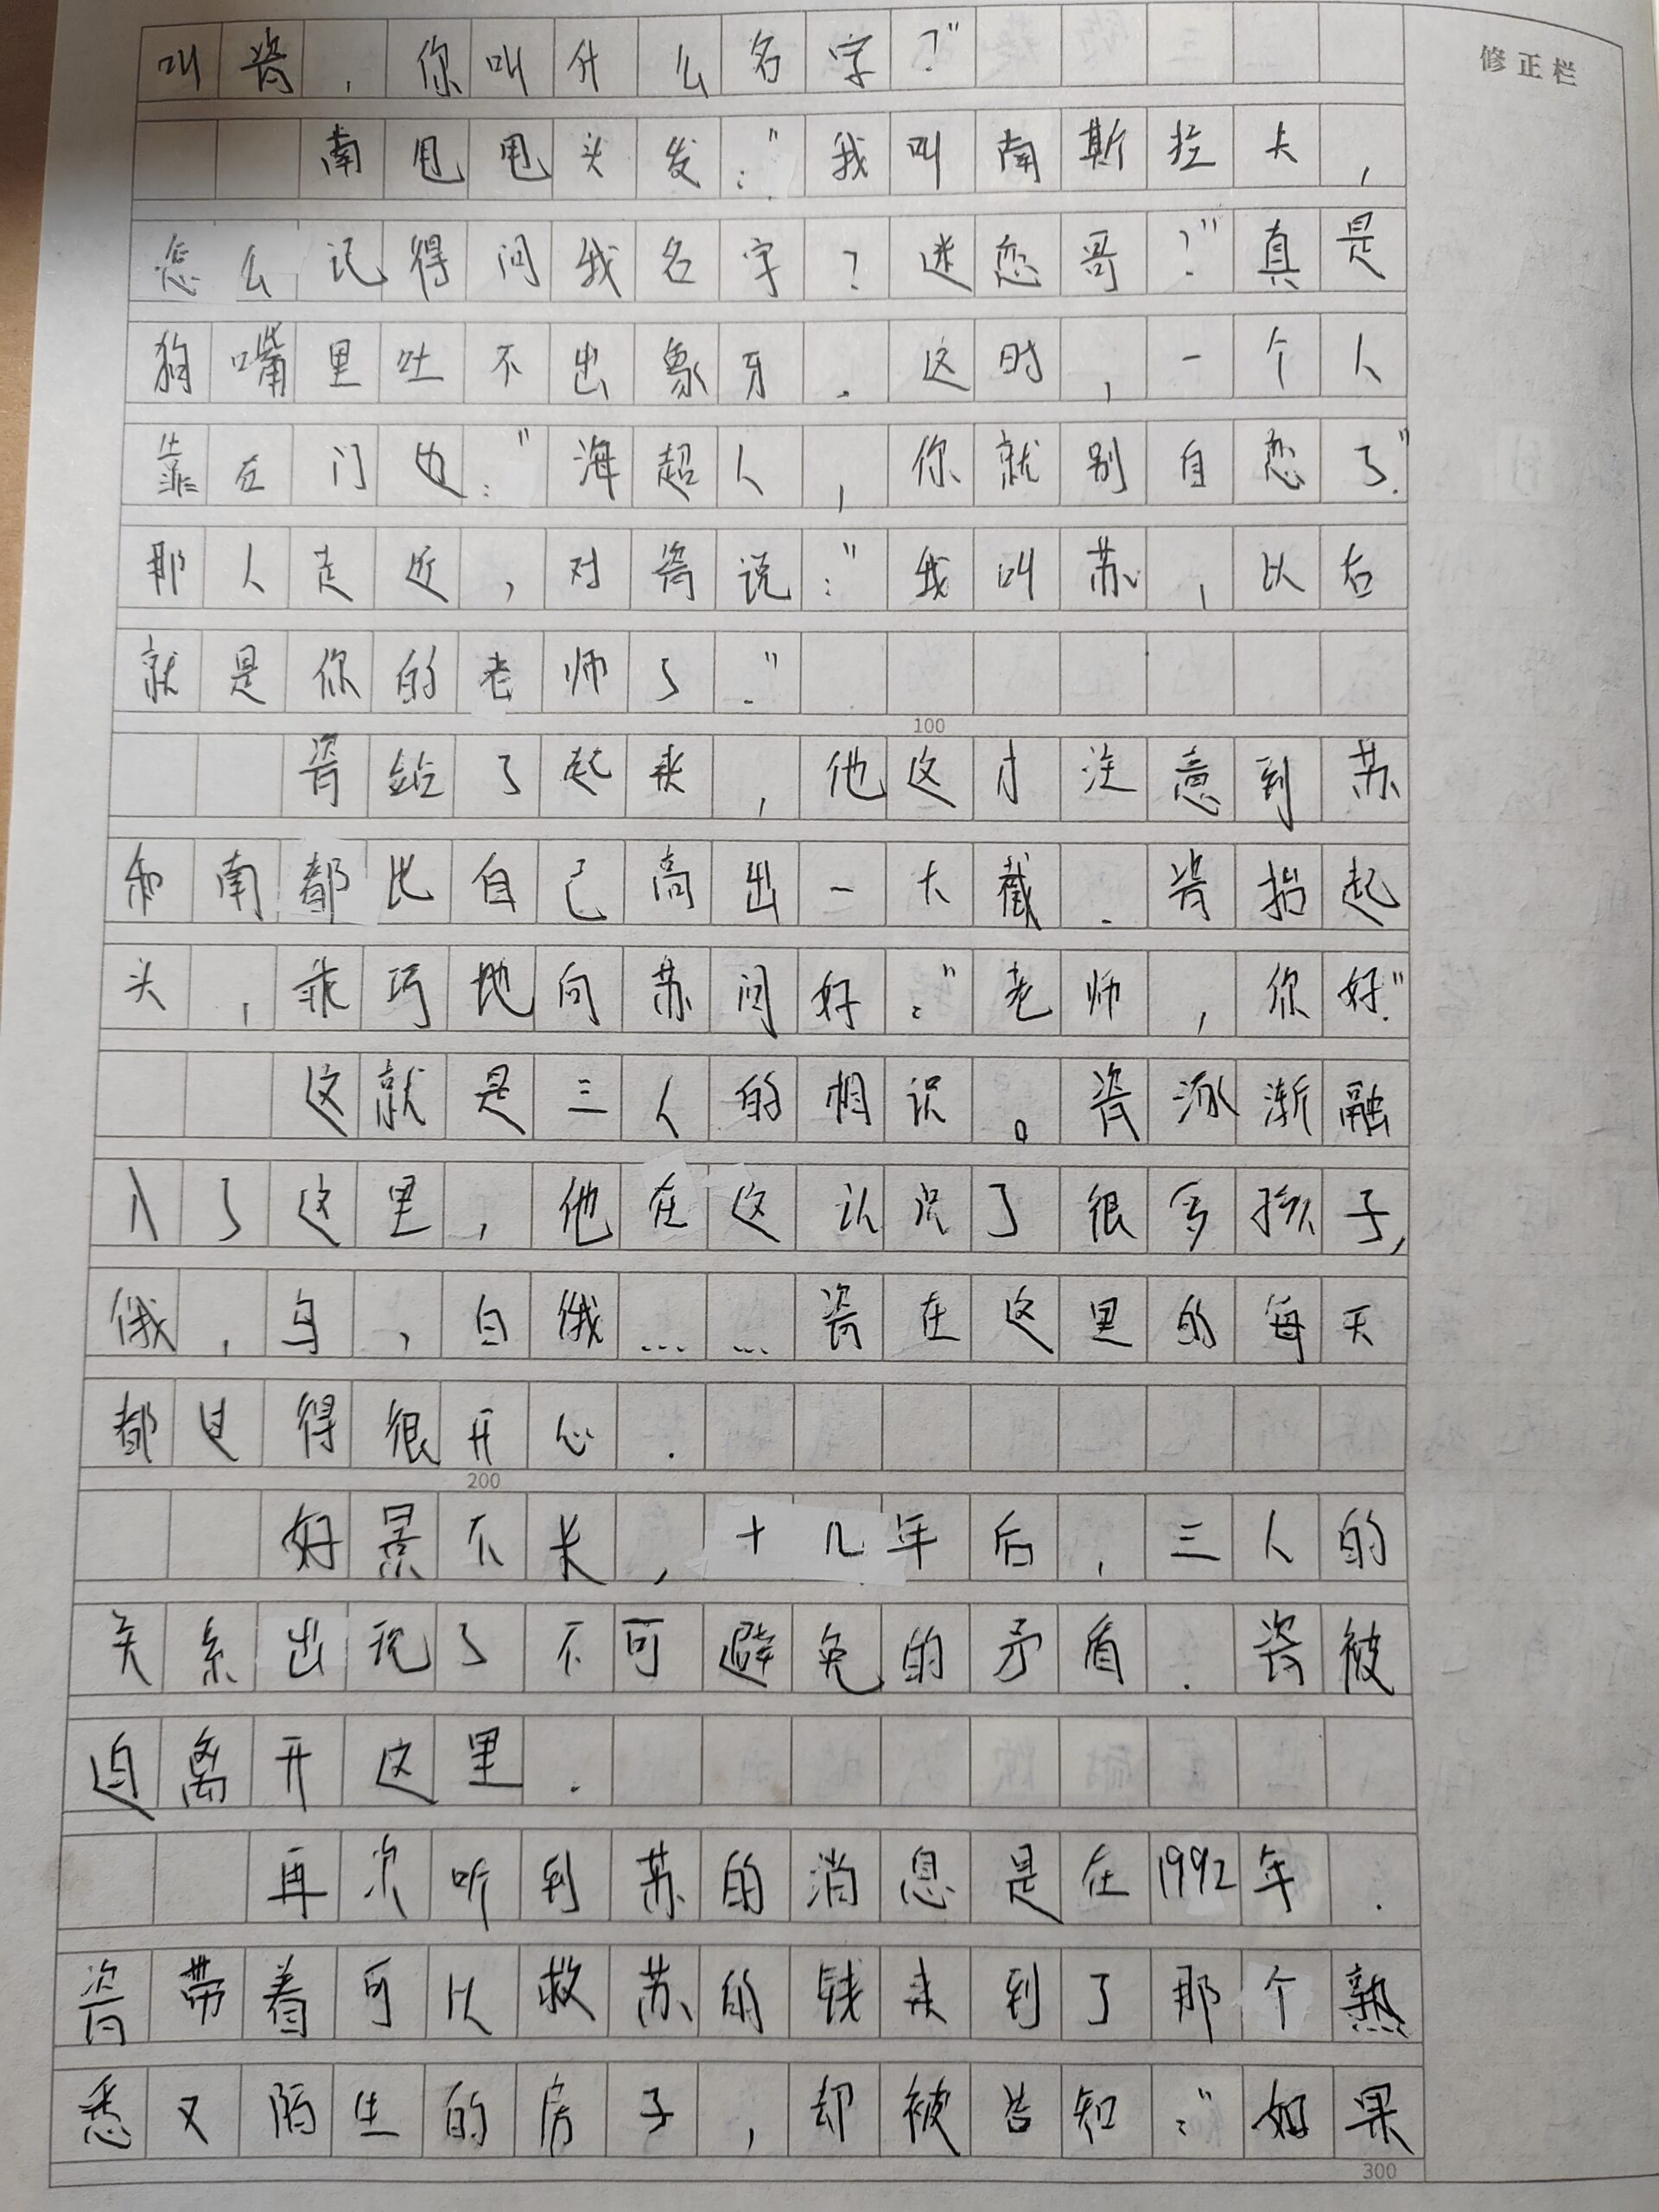 修正栏
叫瓷，你叫什么名字？"
南甩甩头发："我叫南斯拉夫，
怎么记得问我名字？迷恋哥？"真是
狗嘴里吐不出象牙．这时，一个人
靠在门边："海超人，你就别自恋了."
那人走近，对瓷说："我叫苏，以右
就是你的老师了."
100
瓷站了起来，他这才注意到苏
和南都比自己高出一大截．瓷抬起
头，乖巧地向苏问好："老师，你好."
这就是三人的相识。瓷逐渐融
入了这里，他在这认识了很多孩子，
俄，乌，白俄……瓷在这里的每天
都过得很开心．
200
好景不长，十几年后，三人的
关系出现了不可避免的矛盾．瓷被
迫离开这里．
再次听到苏的消息是在1992年．
瓷带着可以救苏的钱来到了那个熟
悉又陌生的房子，却被告知："如果
300